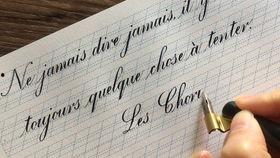 Ne jamais dire jamais, il y
toujours quelque chose à tenter.
Les Chor